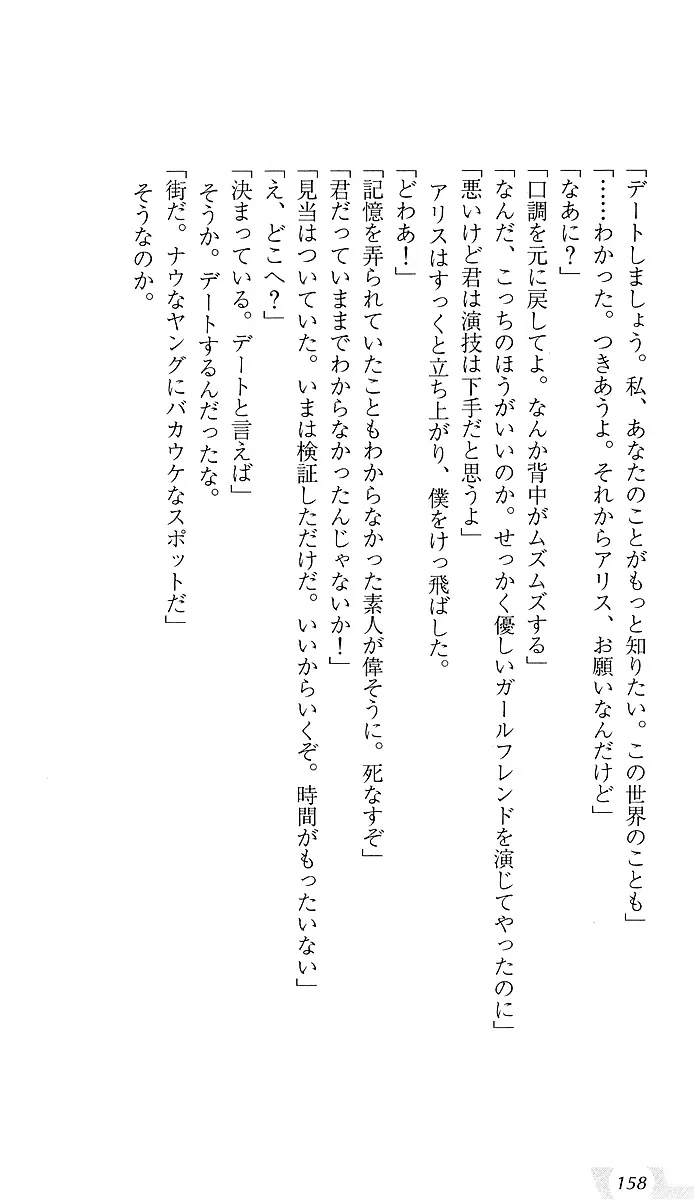 「デートしましょう。私、あなたのことがもっと知りたい。この世界のことも」
「……わかった。つきあうよ。それからアリス、お願いなんだけど」
「なあに？」
「口調を元に戻してよ。なんか背中がムズムズする」
「なんだ、こっちのほうがいいのか。せっかく優しいガールフレンドを演じてやったのに」
「悪いけど君は演技は下手だと思うよ」
アリスはすっくと立ち上がり、僕をけっ飛ばした。
「どわあ！」
「記憶を弄られていたこともわからなかった素人が偉そうに。死なすぞ」
「君だっていままでわからなかったんじゃないか！」
「見当はついていた。いまは検証しただけだ。いいからいくぞ。時間がもったいない」
「え、どこへ？」
「決まっている。デートと言えば」
そうか。デートするんだったな。
「街だ。ナウなヤングにバカウケなスポットだ」
そうなのか。
158